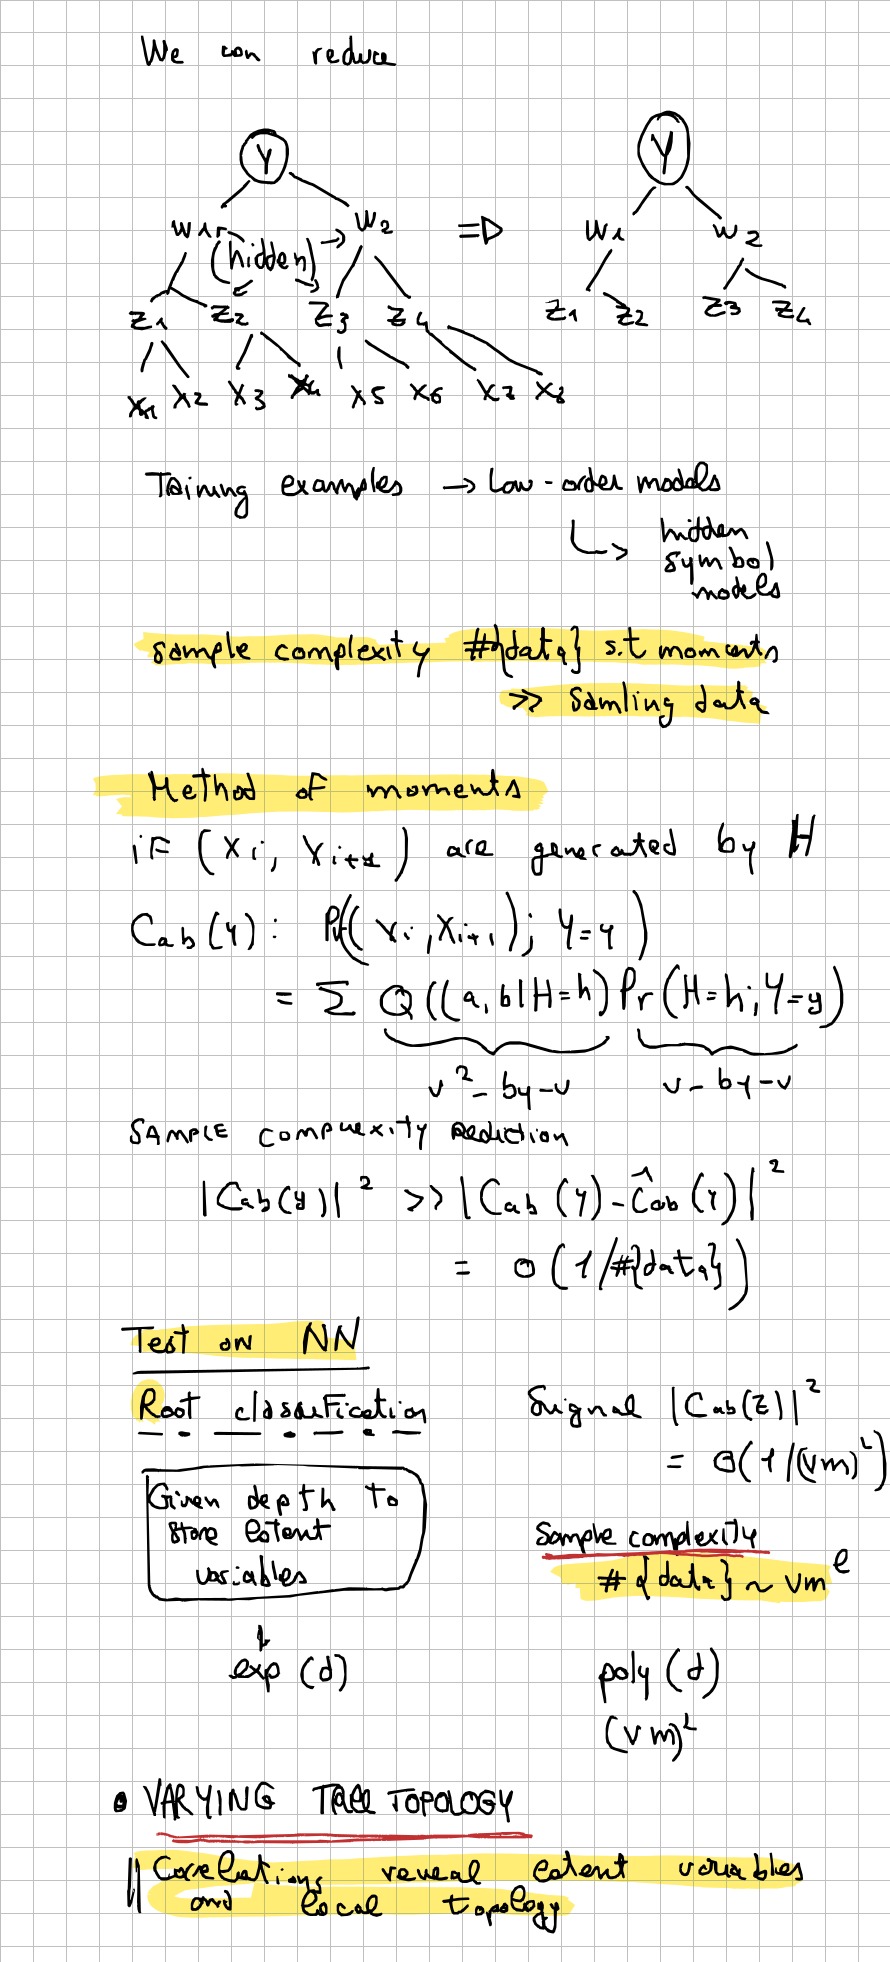 We can reduce
Y
Y
W1
W2
=>
W1
W2
(hidden)
Z1
Z2
Z3
Z4
Z1
Z2
Z3
Z4
X1
X2
X3
X4
X5
X6
X7
X8
Training examples → Low-order models
hidden
symbol
models
Sample complexity #{data} s.t moments
>> Samling data
Method of moments
iF (Xi, Xi+1) are generated by H
Cab(y): Pr((Xi, Xi+1); Y=y)
= Σ Q((a,b|H=h) Pr(H=h; Y=y)
v²-by-v
v-by-v
SAMPLE COMPLEXITY
|Cab(y)|² >> |Cab(y)-Ĉab(y)|²
= O(1/#{data})
Test on NN
Root classification
Signal |Cab(Z)|²
= O(1/(vm)^L)
Given depth to
store latent
variables
Sample complexity
#{data} ~ vm^l
exp(d)
poly(d)
(vm)^L
• VARYING TREE TOPOLOGY
Correlations reveal latent variables
and local topology